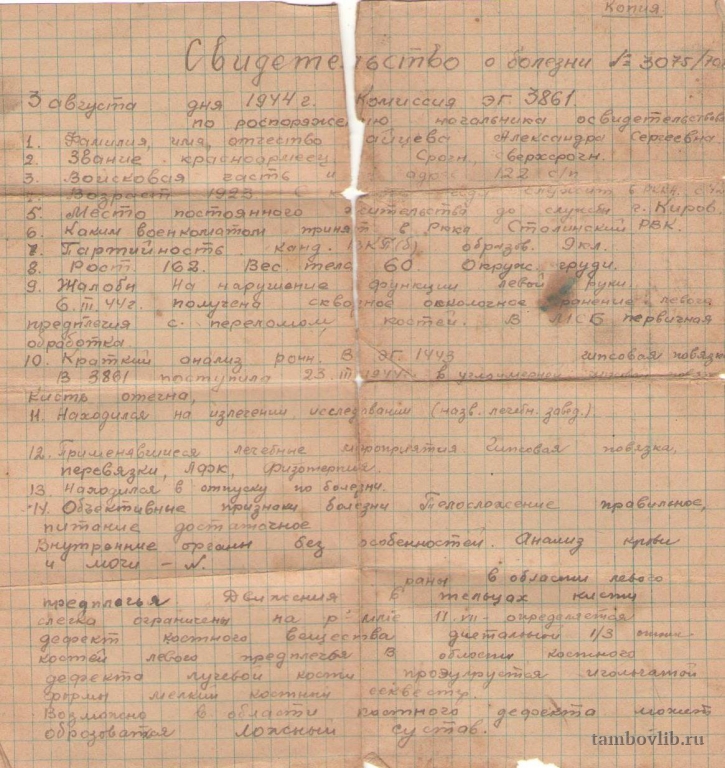 Копия
Свидетельство о болезни № 3075/70
3 августа дня 1944 г. Комиссия ЭГ 3861.
по роспоряжению ночольника освидетельство
1. Фамилия, имя, отчество айцева Александра Сергеевна.
2. Звание красноармеец Срочн. сверхсрочн.
3. Войсковая часть и адрес. 122 с/п
4. Возраст 1923 служить в
5. Место постоянного жительства до службы г. Киров.
6. Каким военкоматом принят в РККА Столинский РВК.
7. Партийность канд. ВКП(б) образов. 9 кл.
8. Рост 162. Вес тела 60. Окруж. груди.
9. Жалобы На нарушение функции левой руки.
6.III.44г. получена сквозное осколочное ранение левого
предплечия с переломом костей. В МСБ первичная
обработка.
10. Краткий анализ ранн. В ЭГ 1443 гипсовая повязк
В 3861 поступила 23.III 1944г. в
кисть отечна,
11. Находился на излечении, исследовании (назв. лечебн. завед.)
12. Применявшиеся лечебные мероприятия Гипсовая повязка,
перевязки, ЛФК, физотерпия.
13. Находился в отпуску по болезни.
14. Объективные признаки болезни Телосложение правильное,
питание достаточное
Внутренние органы без особенностей. Анализ крови
и мочи - N.
раны в области левого
предплечья Движения в тельцах кисти
слегка ограничены на 11.VII - определяется
дефект костного вещества дистальной 1/3
костей левого предплечья В области костного
дефекта лучевой кости прощупустся игольчатой
формы мелкий костный секвестр.
Возможно в области костного дефекта может
образоваться ложный сустав.
tambovlib.ru